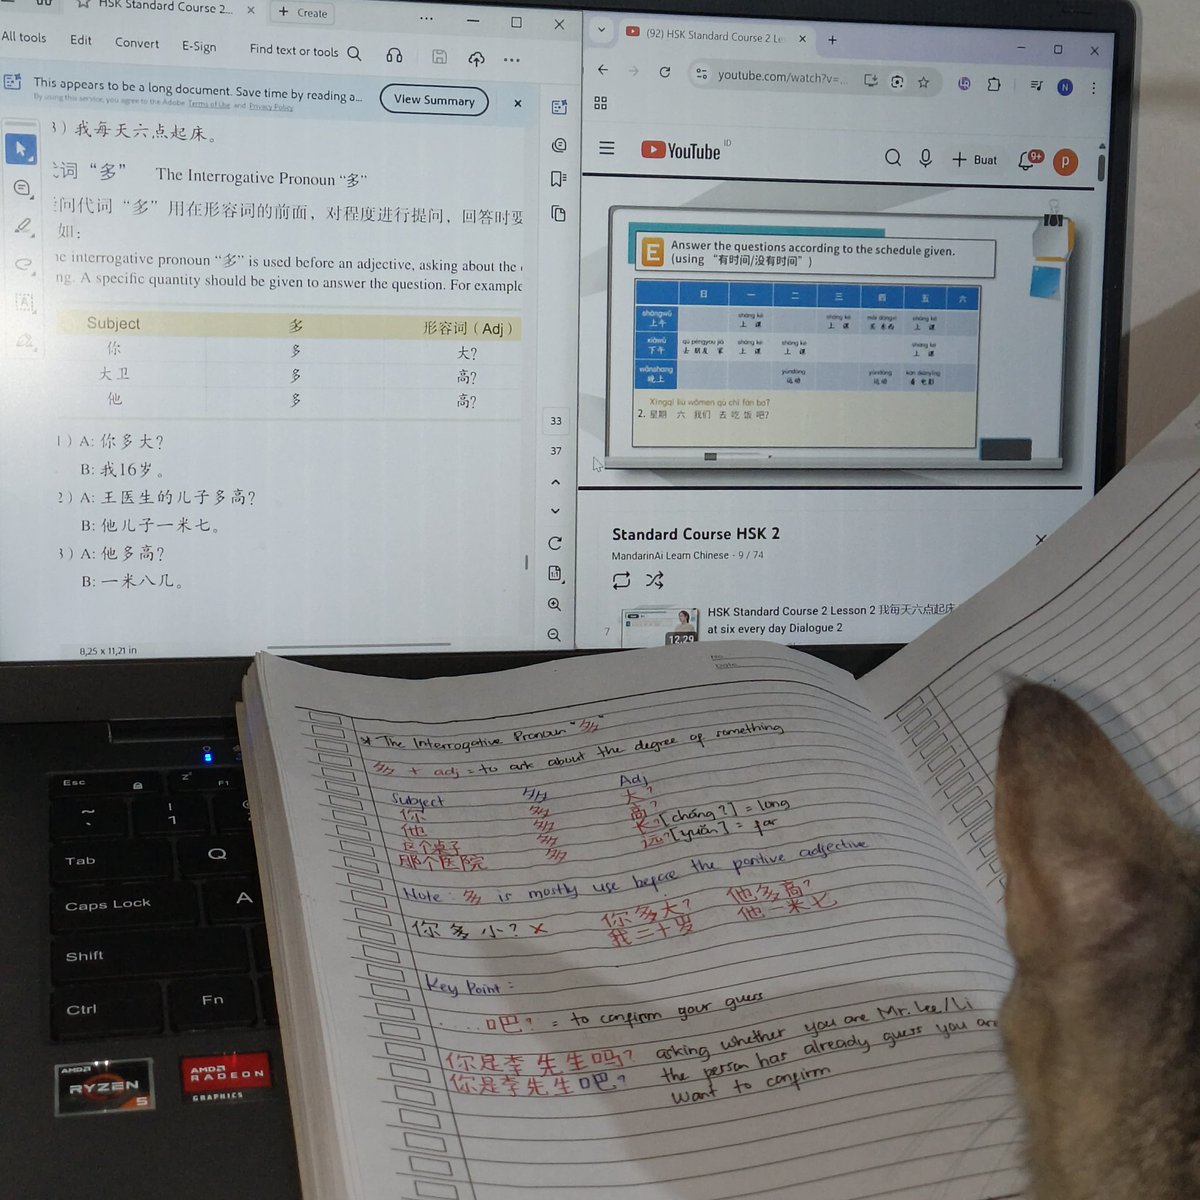 HSK Standard Course 2...
+ Create
All tools Edit Convert E-Sign Find text or tools
This appears to be a long document. Save time by reading a...
By using this service, you agree to the Adobe Terms of Use and Privacy Policy
View Summary
3）我每天六点起床。
代词“多” The Interrogative Pronoun “多”
问代词“多”用在形容词的前面，对程度进行提问，回答时要
如：
interrogative pronoun “多” is used before an adjective, asking about the
ng. A specific quantity should be given to answer the question. For example
Subject 多 形容词（Adj）
你 多 大?
大卫 多 高?
他 多 高?
1）A: 你多大?
B: 我16岁。
2）A: 王医生的儿子多高?
B: 他儿子一米七。
3）A: 他多高?
B: 一米八几。
33
37
8,25 x 11,21 in
(92) HSK Standard Course 2 Le
youtube.com/watch?v=...
N
YouTube ID
+ Buat
9+
P
E Answer the questions according to the schedule given.
(using “有时间/没有时间”)
日 一 二 三 四 五 六
shàngwǔ shàng kè shàng kè mǎi dōngxi shàng kè
上午 上 课 上 课 买 东西 上 课
xiàwǔ qù péngyou jiā shàng kè shàng kè shàng kè
下午 去 朋友 家 上 课 上 课 上 课
wǎnshang yùndòng yùndòng kàn diànyǐng
晚上 运动 运动 看 电影
Xīngqī liù wǒmen qù chī fàn ba?
2. 星期 六 我们 去 吃 饭 吧?
Standard Course HSK 2
MandarinAi Learn Chinese - 9 / 74
7
12.29
HSK Standard Course 2 Lesson 2 我每天六点起床
at six every day Dialogue 2
No
Date
* The Interrogative Pronoun "多"
多 + adj = to ask about the degree of something
Subject 多 Adj
你 多 大?
他 多 高?
这个桌子 多 长? [cháng?] = long
那个医院 多 远? [yuǎn] = far
Note: 多 is mostly use before the positive adjective
你多小? x 你多大? 他多高?
我二十岁 他一米七
Key Point:
....吧? = to confirm your guess
你是李先生吗? asking whether you are Mr. Lee/Li
你是李先生吧? the person has already guess you are
want to confirm
Esc
F1
Tab
Q
Caps Lock
A
Shift
Ctrl
Fn
AMD
RYZEN
5
AMD
RADEON
GRAPHICS